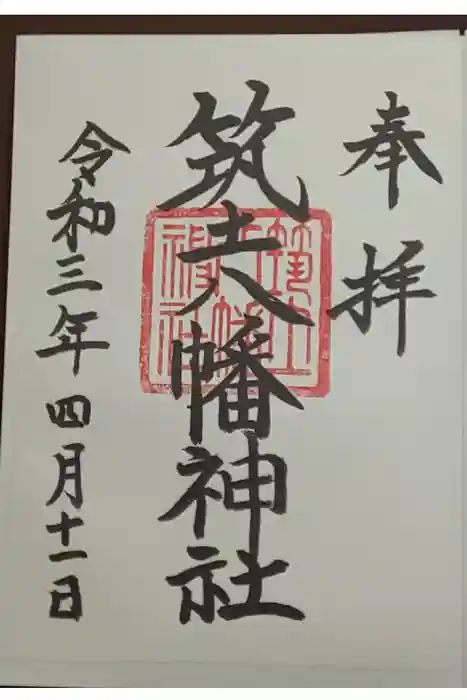 奉拝
筑土八幡神社
令和三年四月十一日